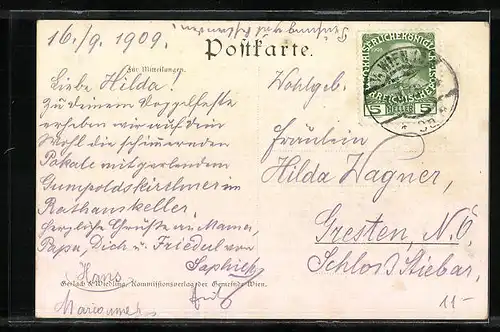 16./9. 1909.
Postkarte.
Für Mitteilungen.
Liebe Hilda!
Zu Deinem Doppelfeste
erheben wir auf Dein
Wohl die schimmernden
Pokale mit perlendem
Gumpoldskirchner im
Rathauskeller.
Herzliche Grüsse an Mama,
Papa, Dich u. Friedel von
Hans
Gerlach & Wiedling, Kommissionsverlag der Gemeinde Wien.
Wohlgeb.
Fräulein
Hilda Wagner,
Gresten, N.Ö.
Schloß Stiebar.
WIEN
5 HELLER 5
11-